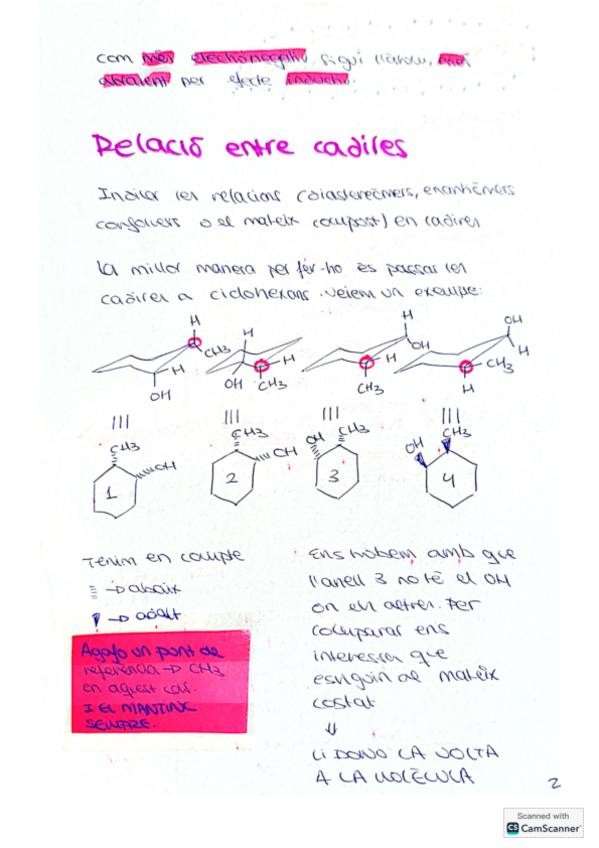 com més electronegatiu sigui l'àtom, més
atraient per efecte inductiu.
Relació entre cadires
Indicar les relacions (diastereòmers, enantiòmers
confòrmers o el mateix compost) en cadires
La millor manera per fer-ho és passar les
cadires a ciclohexans. Veiem un exemple:
H H H OH
CH3 H OH H
H H H CH3
OH OH CH3 CH3 H
CH3 CH3 OH CH3 OH CH3
OH OH
1 2 3 4
Tenim en compte
→ abaix
→ adalt
Agafo un punt de
referència → CH3
en aquest cas.
I EL MANTINC
SEMPRE.
Ens trobem amb que
l'anell 3 no té el OH
on els altres. Per
comparar ens
interessa que
estiguin al mateix
costat
⇓
LI DONO LA VOLTA
A LA MOLÈCULA
2
Scanned with
CS CamScanner